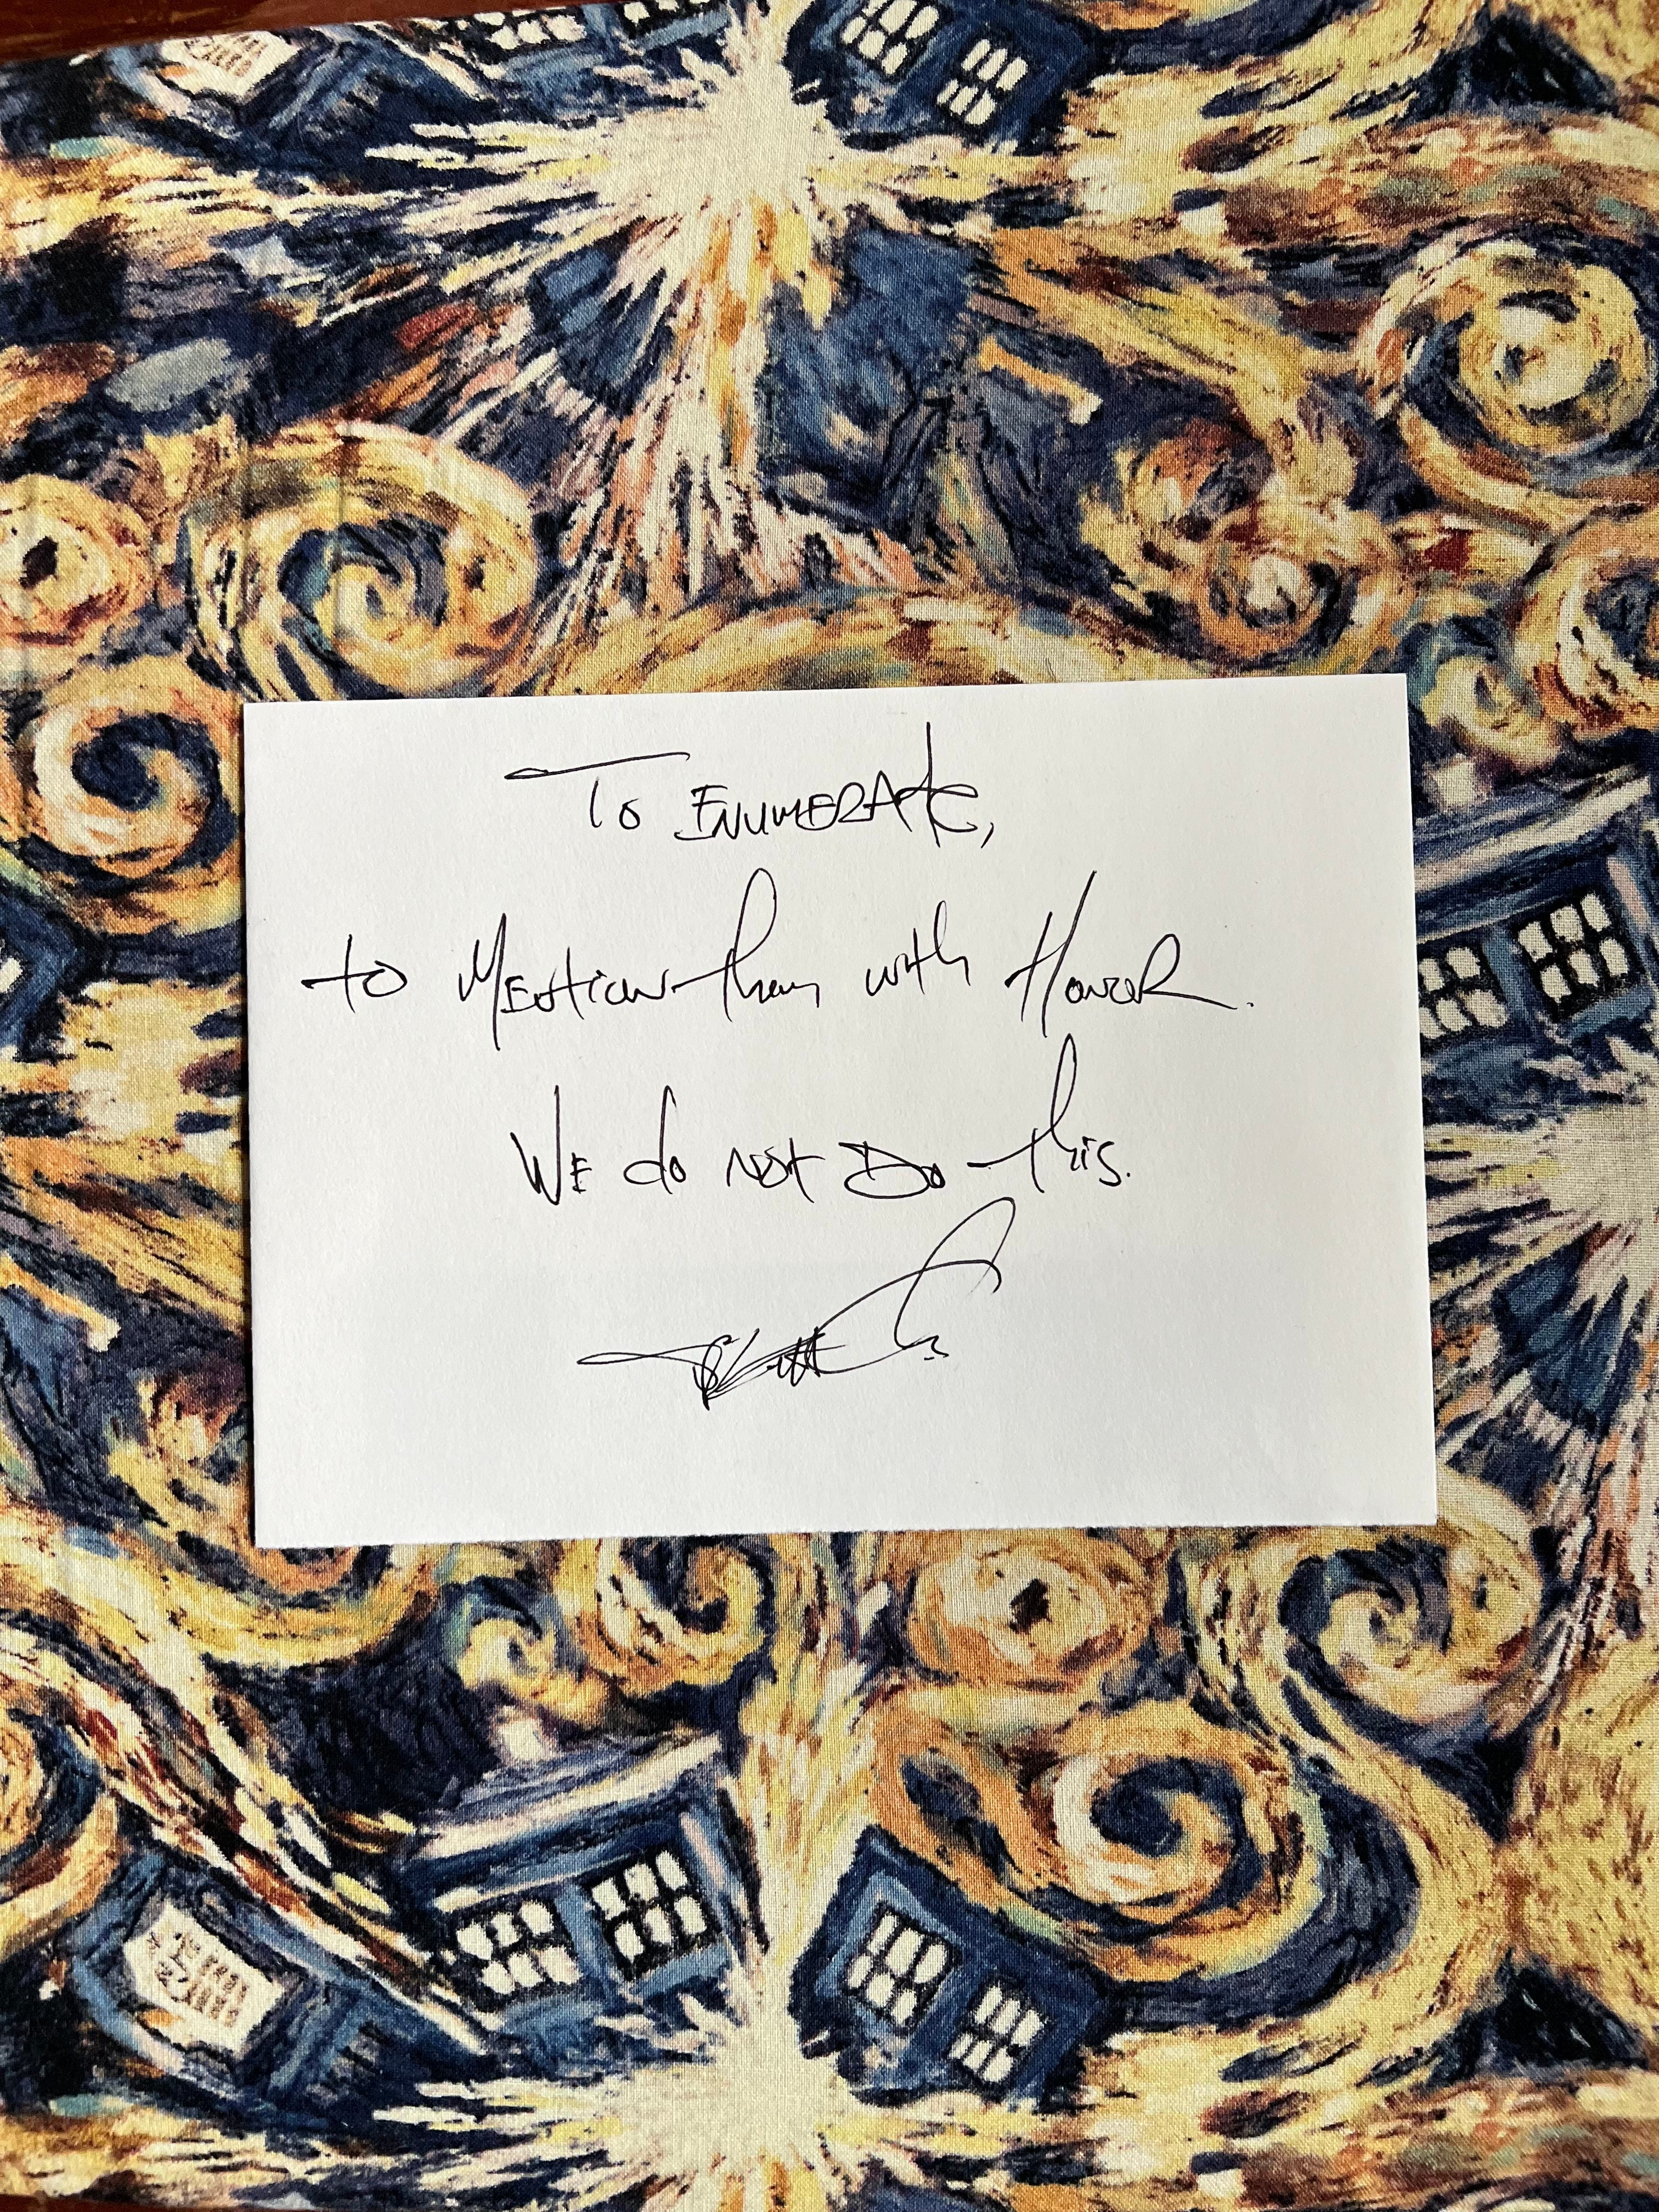 To Enumerate,
to Mention them with Honor.
We do not Do this.